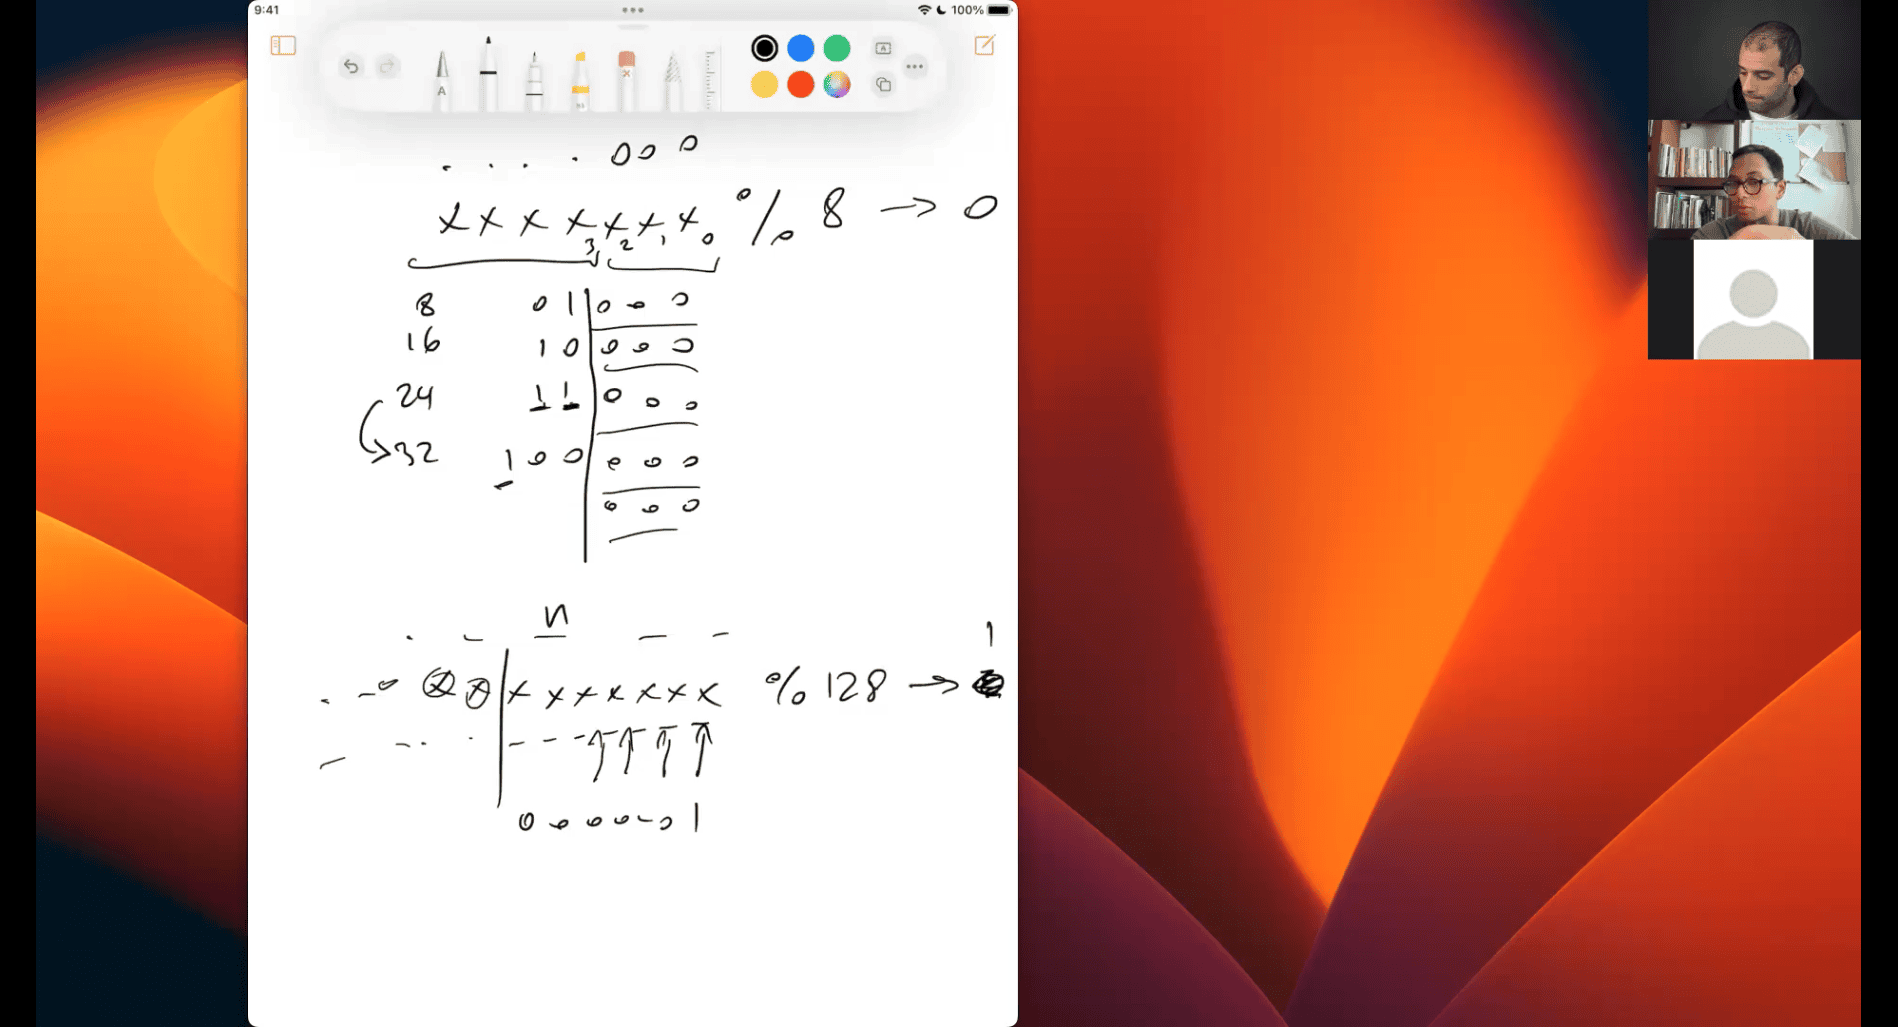 9:41 100%
A A
. . . . 0 0 0
x x x x x x x % 8 → 0
3 2 1 0
8 0 1 0 0 0
16 1 0 0 0 0
24 1 1 0 0 0
32 1 0 0 0 0 0
0 0 0
n
1
x x x x x x x x x % 128 →
0 0 0 0 0 1